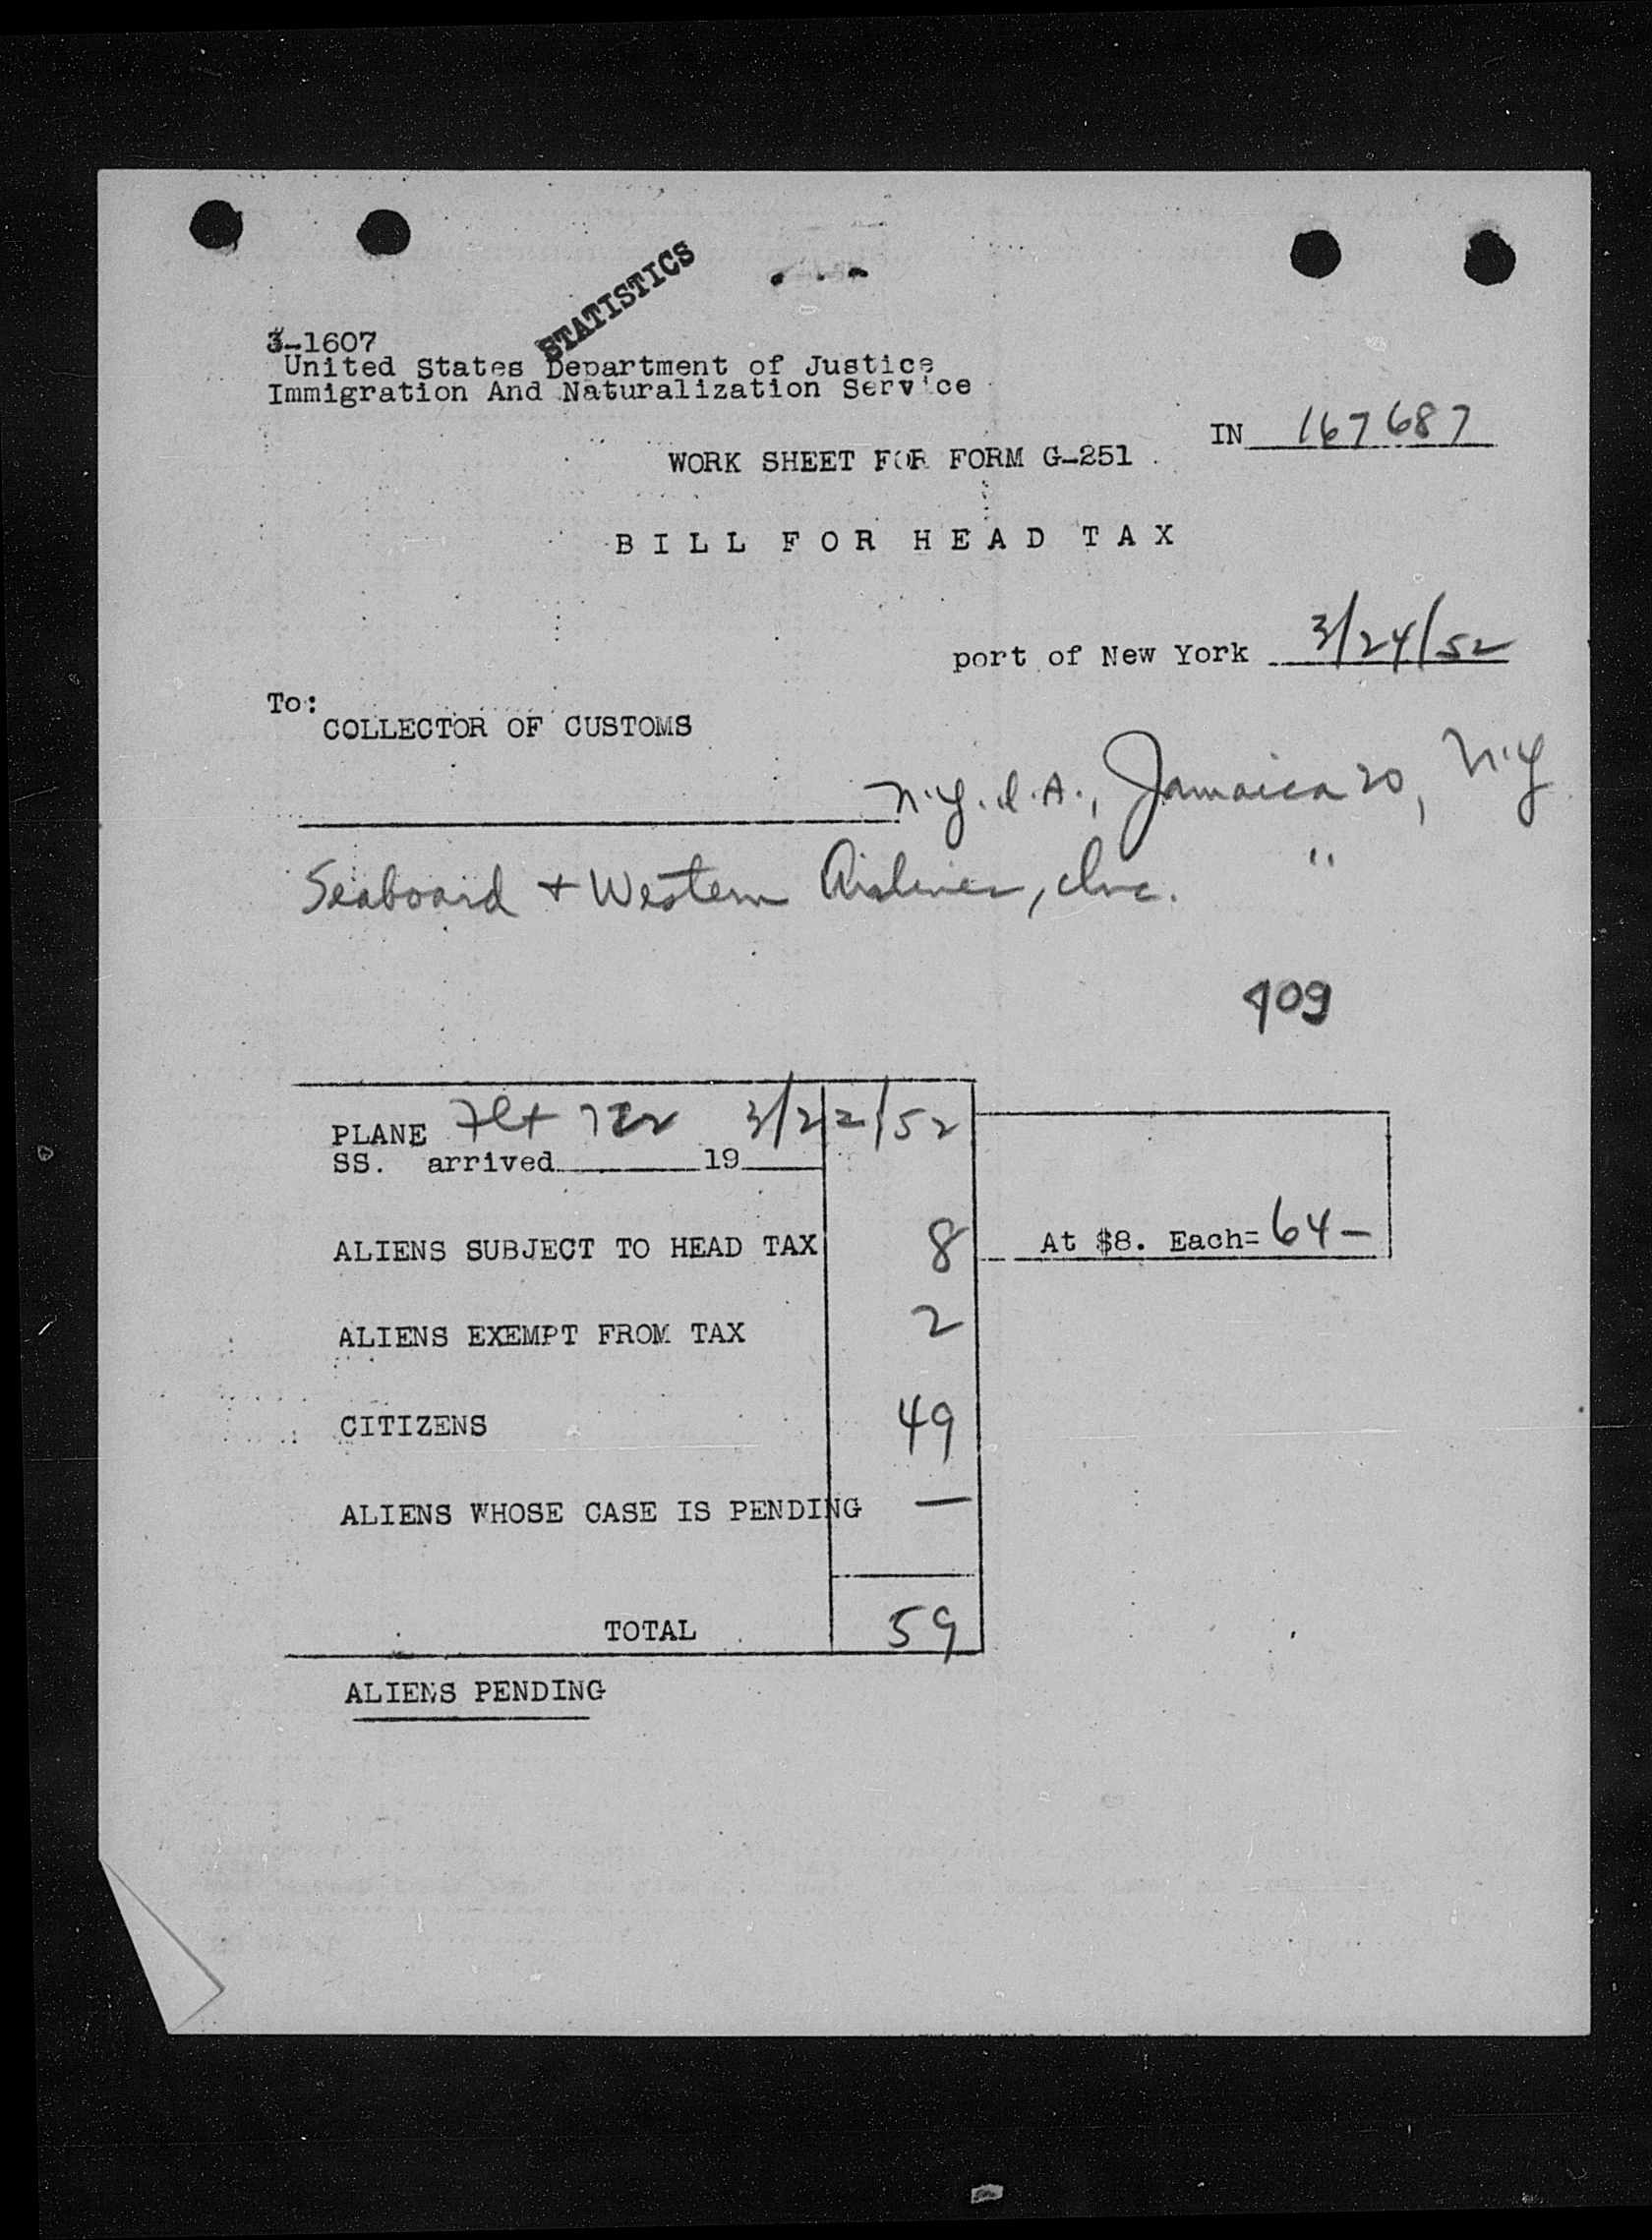 STATISTICS
3-1607
United States Department of Justice
Immigration And Naturalization Service
IN 167687
WORK SHEET FOR FORM G-251
BILL FOR HEAD TAX
port of New York 3/24/52
To:
COLLECTOR OF CUSTOMS
N.Y.I.A., Jamaica 20, N.Y
Seaboard + Western Airlines, Inc. "
409
PLANE Flt 3/22/52
SS. arrived 19
ALIENS SUBJECT TO HEAD TAX 8 At $8. Each= 64-
ALIENS EXEMPT FROM TAX 2
CITIZENS 49
ALIENS WHOSE CASE IS PENDING —
TOTAL 59
ALIENS PENDING